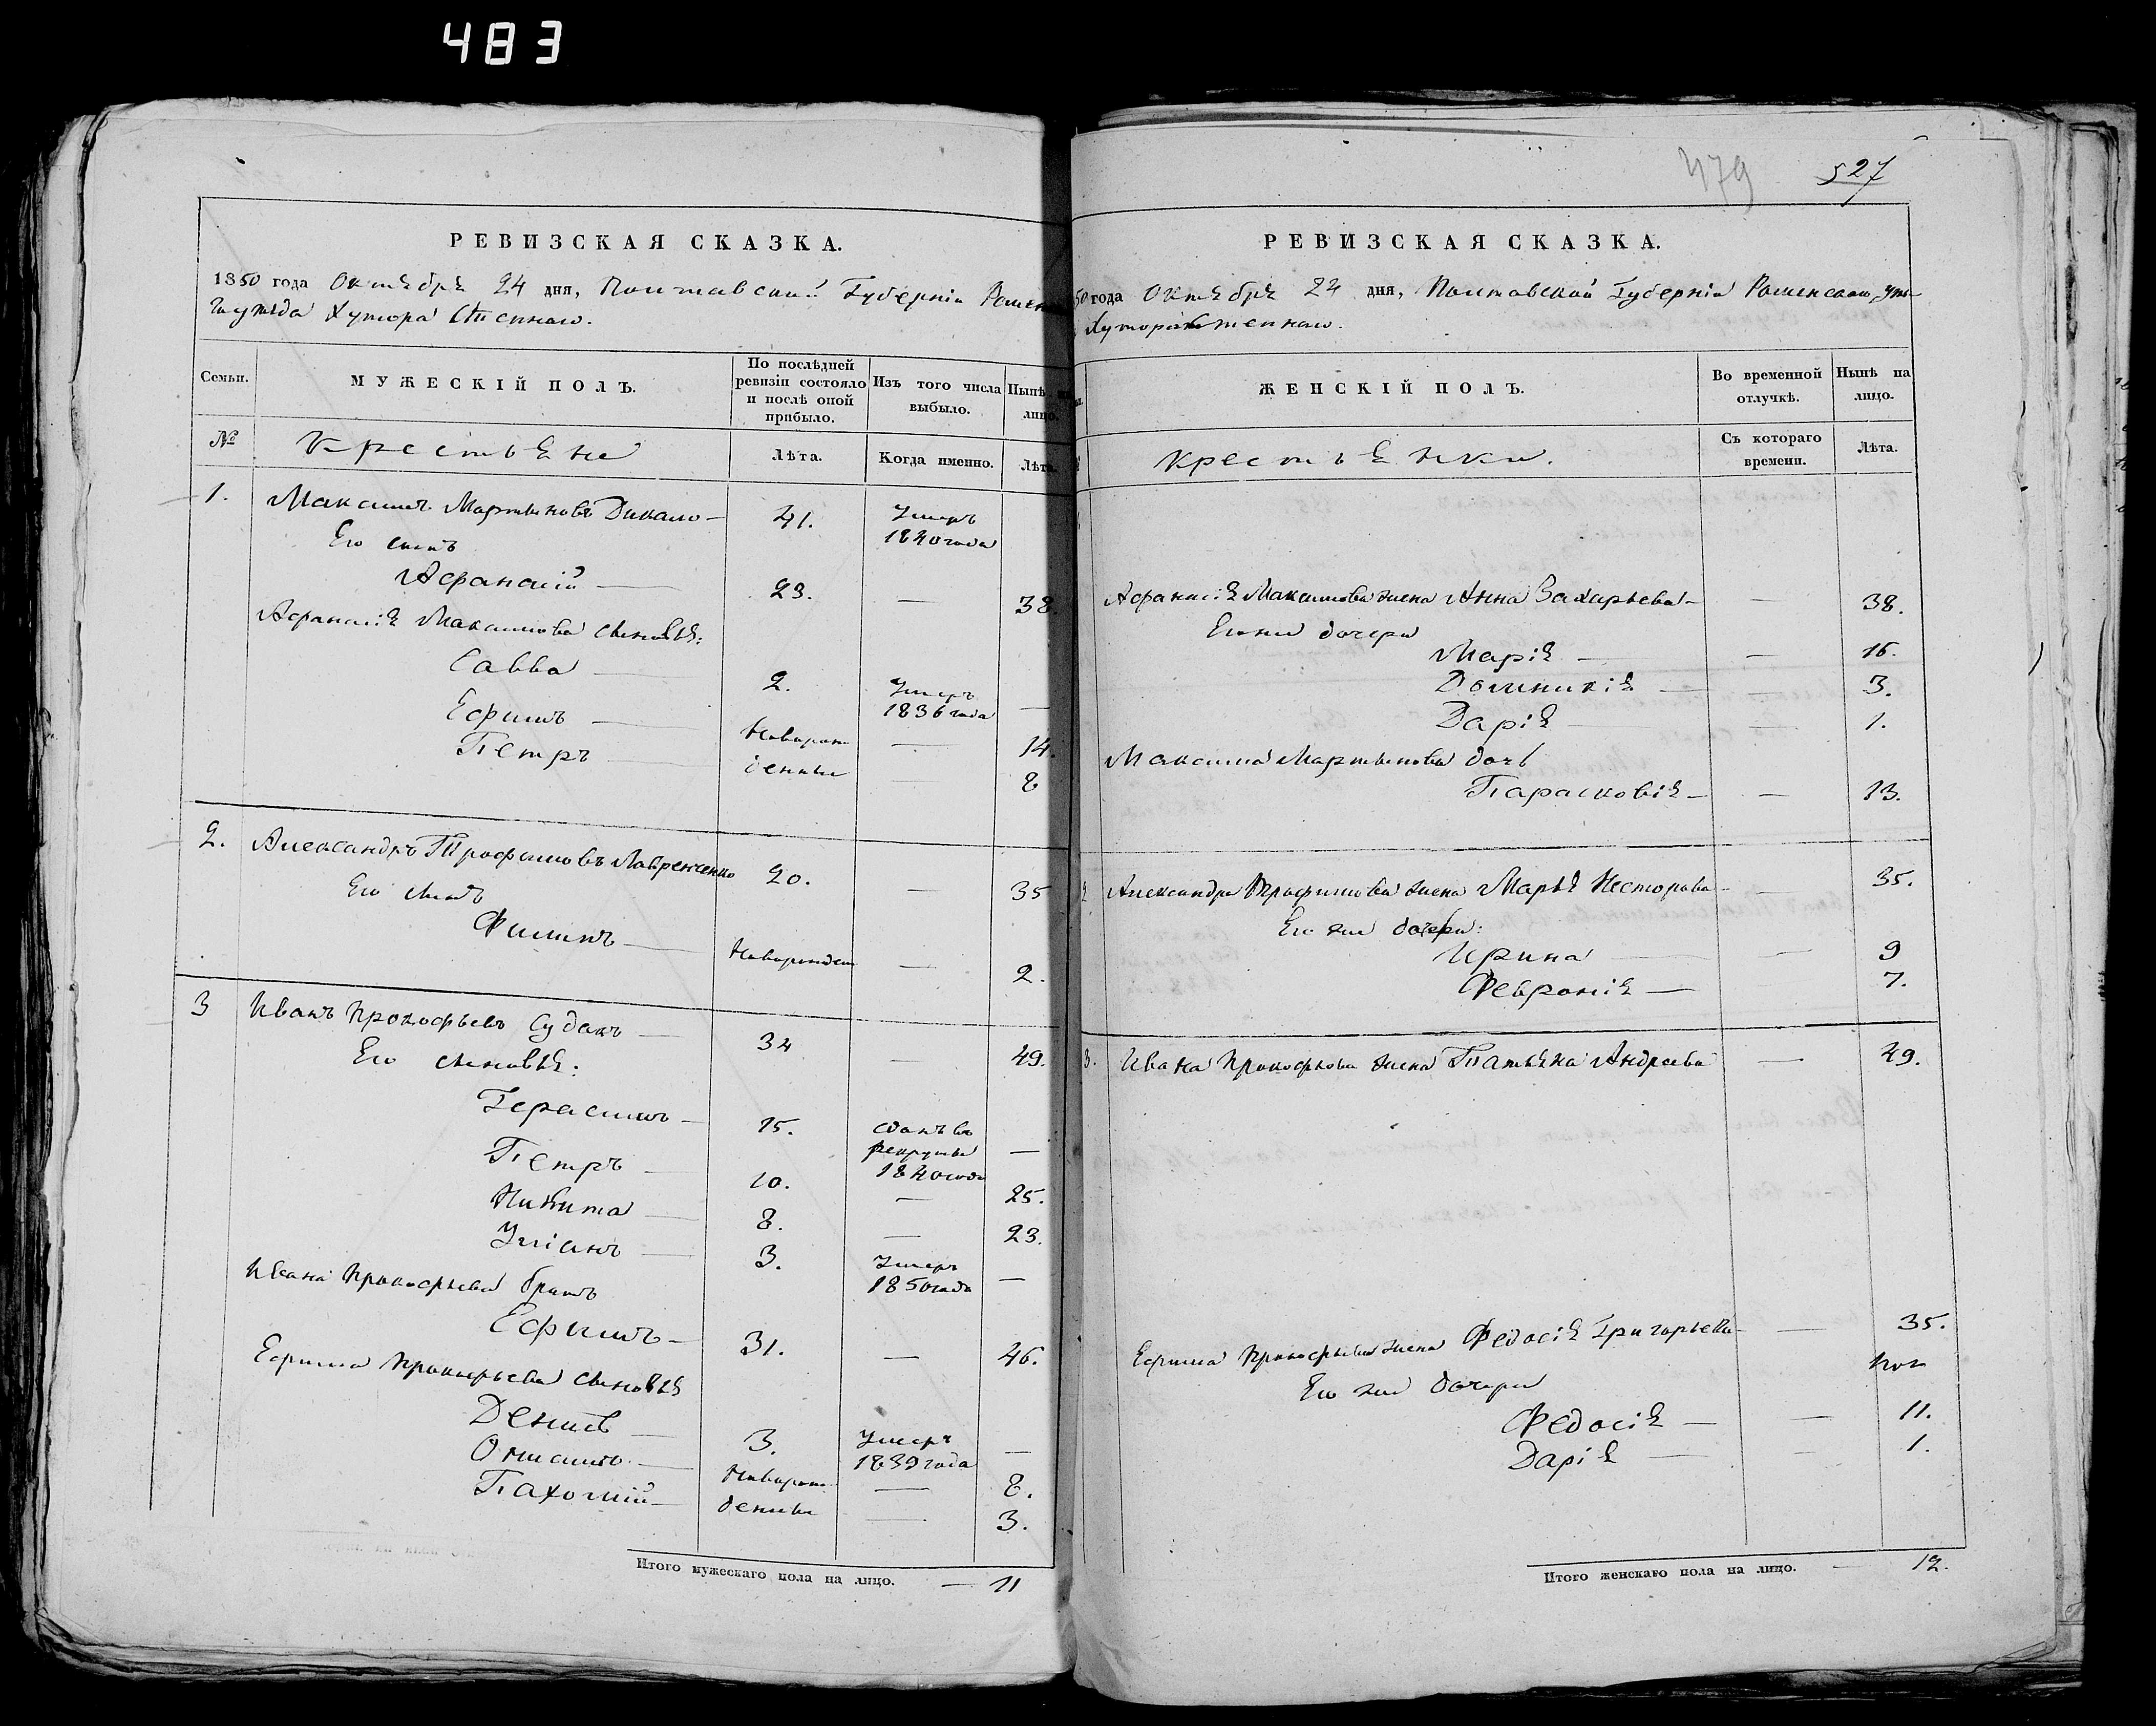 483
РЕВИЗСКАЯ СКАЗКА.
1850 года Октября 24 дня, Полтавской Губерніи Ромен
уѣзда Хутора Степнаго.
Семьи.
МУЖЕСКІЙ ПОЛЪ.
По послѣдней
ревизіи состояло
и послѣ оной
прибыло.
Изъ того числа
выбыло.
Нынѣ
лицо.
№
Крестьяне
Лѣта.
Когда именно.
Лѣта
1. Максимъ Мартыновъ Дикало — 41. Умеръ 1840 года
Его сынъ
Афанасій — 23. — 38.
Афанасія Максимова сыновья:
Савва — 2. Умеръ 1836 года —
Ефимъ — Новорож — 14.
Петръ — денные — 8
2. Александръ Трофимовъ Лавренченко 20. — 35
Его сынъ
Филипъ — Новорожден — 2.
3 Иванъ Прокофьевъ Судакъ — 34 — 49.
Его сыновья:
Герасимъ — 15. сданъ въ рекруты 1840 года —
Петръ — 10. — 25.
Никита — 8. — 23.
Уліанъ — 3. Умеръ 1850 года —
Ивана Прокофьева братъ
Ефимъ — 31. — 46.
Ефима Прокофьева сыновья
Денисъ — 3. Умеръ 1839 года —
Онисимъ — Новорож — 8.
Пахомій — денные — 3.
Итого мужескаго пола на лицо. — 11
479 527
РЕВИЗСКАЯ СКАЗКА.
50 года Октября 24 дня, Полтавской Губерніи Роменскаго уѣз
Хутора Степнаго.
ЖЕНСКІЙ ПОЛЪ.
Во временной
отлучкѣ.
Нынѣ на
лицо.
Крестьянки.
Съ котораго
времени.
Лѣта.
Афанасія Максимова жена Анна Захарьева — — 38.
Его же дочери
Марія — — 16.
Домникія — — 3.
Дарія — — 1.
Максима Мартынова дочь
Парасковія — — 13.
2 Александра Трофимова жена Марья Несторова — — 35.
Его же дочери:
Ирина — — 9
Февронія — 7.
3. Ивана Прокофьева жена Татьяна Андреева — 49.
Ефима Прокофьева жена Федосія Григорьева — — 35.
Его же дочери
Федосія — — 11.
Дарія — — 1.
Итого женскаго пола на лицо. — 12.